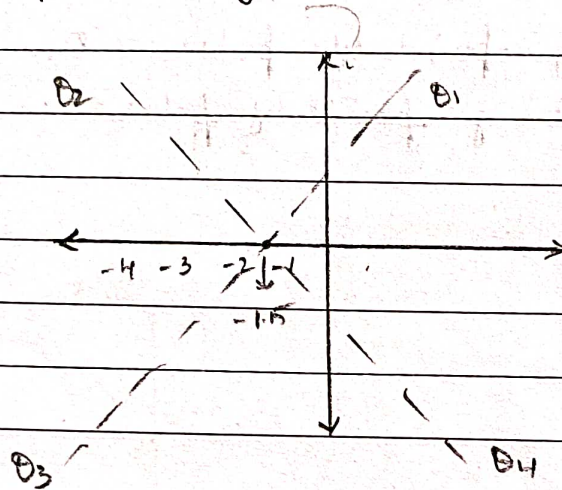 θ2
θ1
-4 -3 -2 -1
θ3
θ4